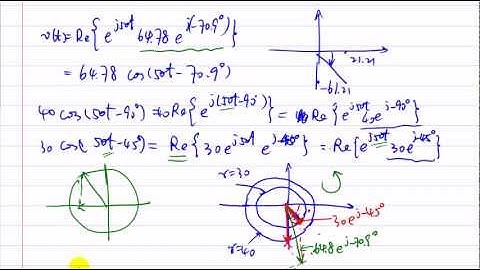 v(t)=Re{e^{j50t} 64.78 e^{j(-70.9°)}}
= 64.78 cos(50t-70.9°)
21.21
-61.21
40 cos(50t-90°) = 40Re{e^{j(50t-90°)}} = Re{e^{j50t} 40e^{j-90°}}
30 cos(50t-45°) = Re{30e^{j50t} e^{j-45°}} = Re{e^{j50t} 30e^{j-45°}}
r=30
30e^{j-45°}
r=40
64.8e^{j-70.9°}